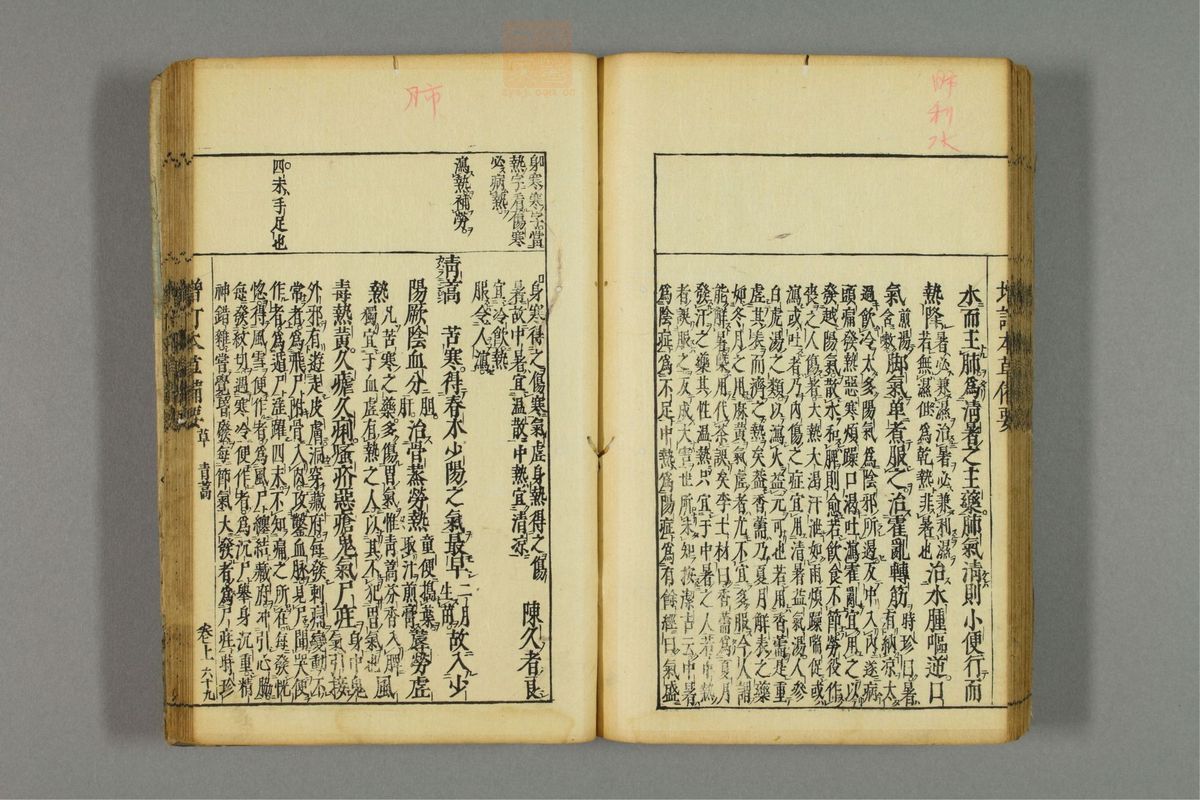 肺
利
水
水而主肺爲清暑之主藥肺氣清則小便行而
熱降暑必兼濕治暑必兼利濕若無濕但爲乾熱非暑也治水腫嘔逆口
氣煎湯含漱脚氣單煮服之治霍亂轉筋時珍曰暑有納涼太
過飲冷太多陽氣爲陰邪所遏反中入内遂病
頭痛發熱惡寒煩躁口渴吐瀉霍亂宜用之以
發越陽氣散水和脾則愈若飲食不節勞役作
喪之人傷暑大熱大渴汗泄如雨煩躁喘促或
瀉或吐者乃内傷之症宜用清暑益氣湯人參
白虎湯之類以瀉火益元可也若用香薷是重
虛其表而濟之熱矣蓋香薷乃夏月解表之藥
如冬月之用麻黃氣虛者尤不宜多服今人謂
能解暑槩用代茶誤矣李士材曰香薷爲夏月
發汗之藥其性溫熱只宜于中暑之人若中熱
者誤服之反成大害世所未知按潔古云中暑
爲陰症爲不足中熱爲陽症爲有餘經曰氣盛
肺
身寒寒字當
熱字看傷寒
必病熱
瀉熱補勞
四末手足也
身寒得之傷寒氣虛身熱得之傷
暑故中暑宜溫散中熱宜清凉 陳久者良
宜冷飲熱
服令人瀉
靑蒿 苦寒得春木少陽之氣最早二月生苗故入少
陽厥陰血分膽肝治骨蒸勞熱童便搗葉取汁煎膏蓐勞虛
熱凡苦寒之藥多傷胃氣惟靑蒿芬香入脾獨宜于血虛有熱之人以其不犯胃氣也風
毒熱黃久瘧久痢瘙疥惡瘡鬼氣尸疰身中鬼氣引接
外邪有遊走皮膚洞穿藏府每發刺痛變動不
常者爲飛尸附骨入肉攻鑿血脉見尸聞哭便
作者爲遁尸淫躍四末不知痛之所在每發恍
惚得風雪便作者爲風尸纏結藏府冲引心脇
每發絞切遇寒冷便作者爲沉尸舉身沉重精
神錯雜嘗覺昏廢每節氣大發者爲尸疰時珍
增訂本草備要
草 靑蒿
卷上 六十九